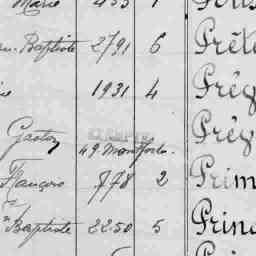 Marie 455 1
Baptiste 2791 6 Prêt
1931 4 Prég
Gaston 49 Montfort. Prég
François 778 2 Prim
Baptiste 2250 5 Prin